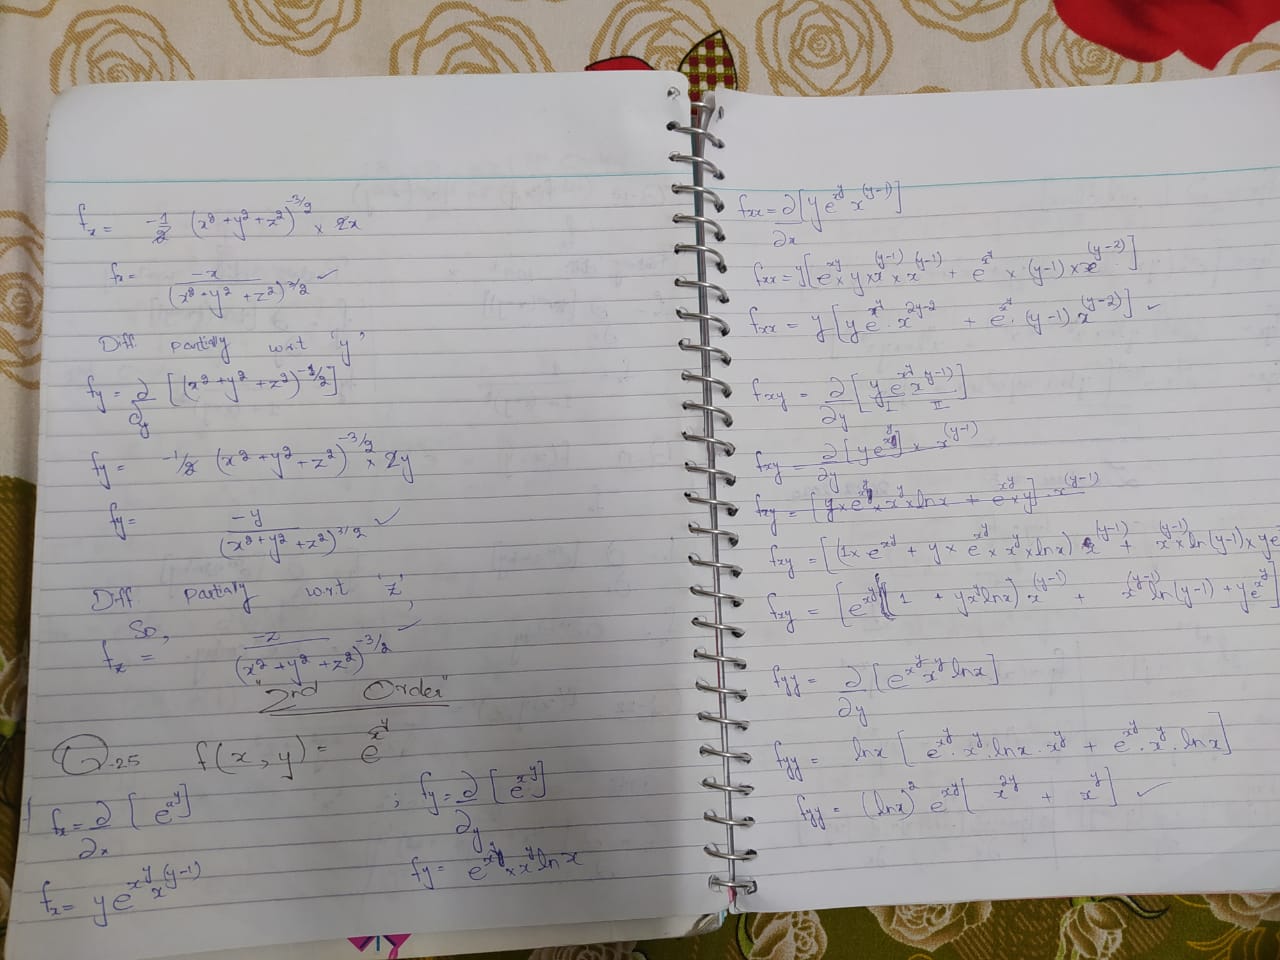 fx = -1/2 (x² + y² + z²)^-3/2 × 2x
fx = -x / (x² + y² + z²)^3/2 ✓
Diff partially w.r.t 'y'
fy = ∂/∂y [(x² + y² + z²)^-1/2]
fy = -1/2 (x² + y² + z²)^-3/2 × 2y
fy = -y / (x² + y² + z²)^3/2 ✓
Diff partially w.r.t 'z',
So,
fz = -z / (x² + y² + z²)^-3/2 ✓
"2nd Order"
Q.25 f(x, y) = e^x^y
fx = ∂/∂x [e^x^y] ; fy = ∂/∂y [e^x^y]
fx = y e^x^y x^(y-1) fy = e^x^y × x^y ln x
fxx = ∂/∂x [y e^x^y x^(y-1)]
fxx = y[e^x^y × y × x^(y-1) × x^(y-1) + e^x^y × (y-1) × x^(y-2)]
fxx = y [y e^x^y · x^2y-2 + e^x^y · (y-1) x^(y-2)] ✓
fxy = ∂/∂y [y e^x^y x^(y-1)]
I II
fxy = ∂/∂y [y e^x^y] × x^(y-1)
fxy = [y × e^x^y × x^y × ln x + e^x^y × y] · x^(y-1)
fxy = [(1 × e^x^y + y × e^x^y × x^y × ln x) x^(y-1) + x^(y-1) × ln(y-1) × y e
fxy = [e^x^y (1 + y x^y ln x) x^(y-1) + x^(y-1) ln(y-1) + y e^x^y]
fyy = ∂/∂y [e^x^y x^y ln x]
fyy = ln x [e^x^y · x^y · ln x · x^y + e^x^y · x^y · ln x]
fyy = (ln x)² e^x^y [x^2y + x^y] ✓